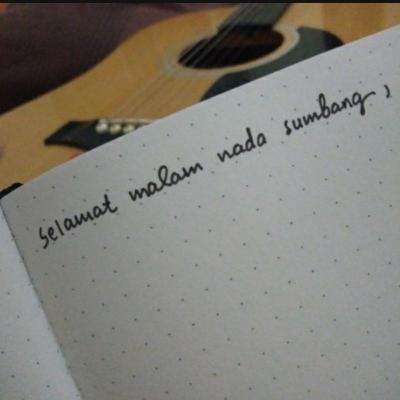 selamat malam nada sumbang,